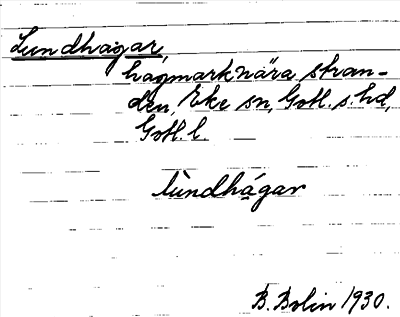 Lundhagar,
hagmark nära stran-
den, Eke sn, Gotl. s. hd,
Gotl. l.
lùndhá̱gar
B. Bolin 1930.